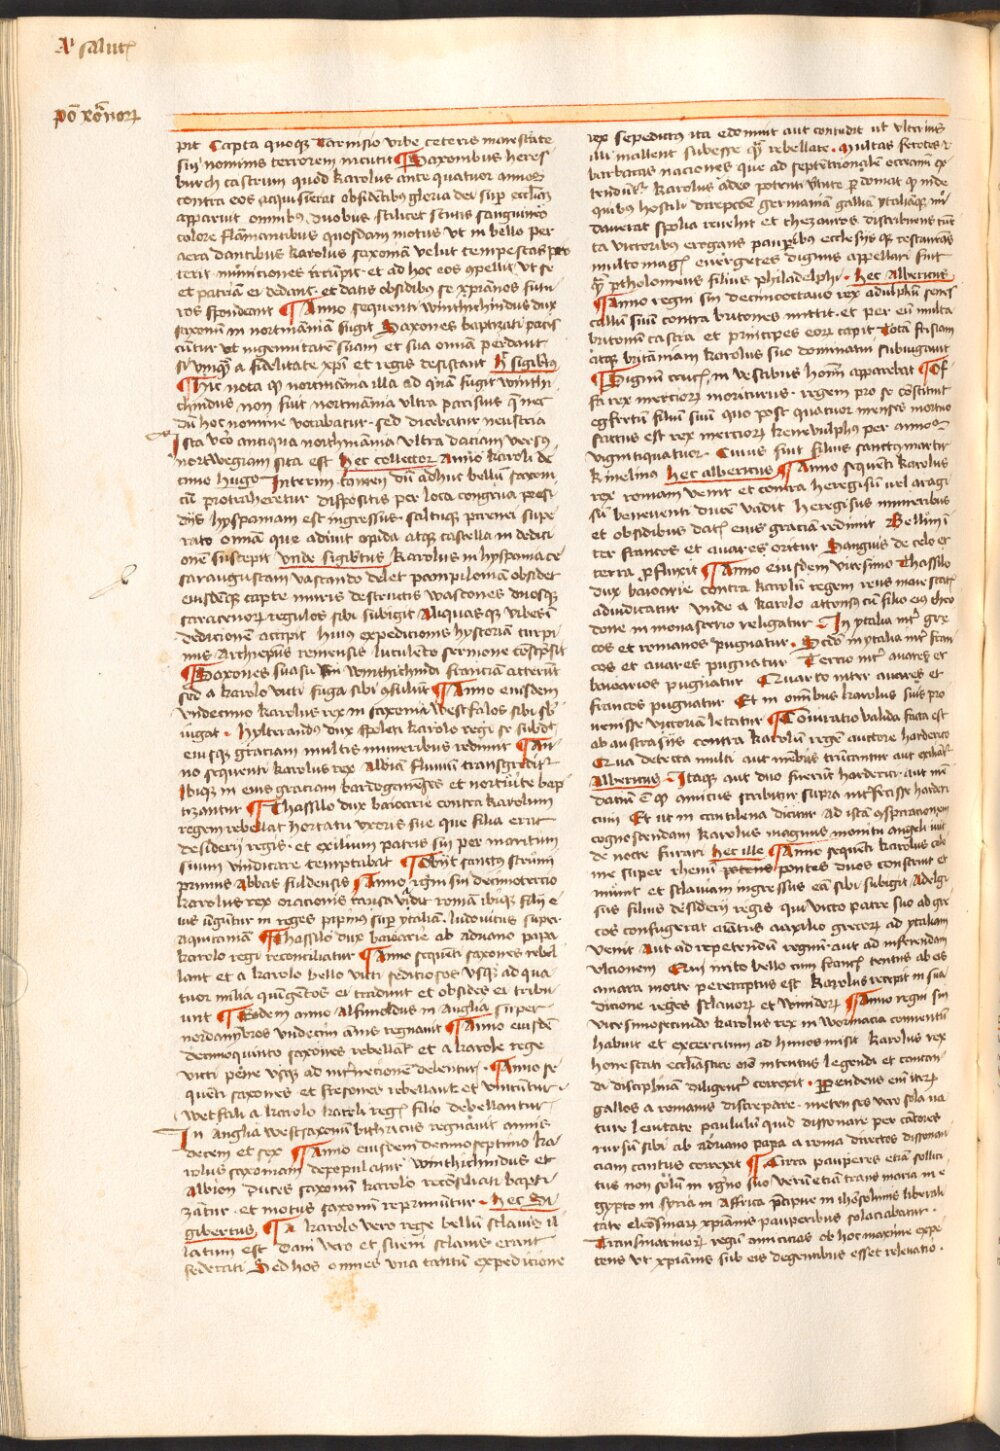 Aᵒ salutꝭ
põ xõnorꝝ
pit Capta quoqꝫ Tarnisio vrbe ceteris maiestate
sui nominis terrorem incutit ¶ Saxonibus heres
burch castrum quod karolus ante quatuor annos
contra eos acquisierat obsidentibꝰ gloria dei sup̄ eccliam
apparuit omnibꝰ duobus scilicet scutis sanguineo
colore flāmantibus quosdam motus vt in bello per
aera dantibus karolus saxoniā velut tempestas per
terit municiones irrūpit et ad hoc eos cōpellit vt se
et patriā ei dedant et datis obsidibꝰ se xp̄ianos futu
ros spondeant ¶ Anno sequenti winthichindus dux
saxonū in nortmāniā fugit Saxones baptizati pacis
cūtur vt ingenuitatē suam et sua omīa perdant
si vnqͣ a fidelitate xp̄i et regis desistant hͦ sigibtꝰ
¶ Hic nota qꝫ nortmānia illa ad quā fugit winthi
chindus non fuit nortmānia vltra parisius que nec
dū hoc nomine vocabatur sed dicebatur neustria
Ista vero antiqua northmānia vltra daciam versꝰ
nortwegiam sita est hec collector Anno karoli de
cimo hugo Interim tamen dū adhuc bellū saxoni
cū protraheretur dispositis per loca congrua presi
diis hyspaniam est ingressus saltuqꝫ pirenei supe
rato omīa que adiuit opida atqꝫ castella in dedici
onē suscepit vnde sigibtus karolus in hyspania ce
saraugustam vastando delet pampiloniā obsidet
eiusdēqꝫ capte muris destructis wascones duosqꝫ
saracenorꝫ regulos sibi subigit aliquasqꝫ vrbes in
dedicionē accipit huius expedicionis hystoriā turpi
nus archiepūs remensis luculēto sermone cōscripsit
¶ Saxones suasu winthichindi franciā atterūt
sed a karolo victi fuga sibi cōsulūt ¶ Anno eiusdem
vndecimo karolus rex in saxonia westfalos sibi sb
iugat · hylterandꝰ dux spoleti karolo regi se subdit
eiusqꝫ graciam multis muneribus redimit ¶ An
no sequenti karolus rex albiā fluuiū transgreditur
Ibiqꝫ in eius graciam bardogenēses et nortuite bap
tizantur ¶ Thassilo dux baioarie contra karolum
regem rebellat hortatu vxoris sue que filia erat
desiderij regis et exilium patris sui per maritum
suum vindicare temptabat ¶ Obijt sanctꝰ strumi
primus abbas fuldensis ¶ Anno rꝫni sui decimotercio
karolus rex oracionis causa vadit romā ibiqꝫ filij e
ius vngūtur in reges pipinꝰ sup̄ ytaliā ludouicus super
aquitaniam ¶ Thassilo dux baioarie ab adriano papa
karolo regi reconciliatur ¶ Anno sequēti saxones rebel
lant et a karolo bello victi sediciosos vsqꝫ ad qua
tuor milia quīgentos ei tradunt et obsides ei tribu
unt ¶ Eodem anno alfunoldus in anglia super
nordanybros vndecim annis regnauit ¶ Anno eiusdē
decimoquinto saxones rebellāt et a karolo rege
victi pene vsqꝫ ad int̄necionē delentur · ¶ Anno se
quēti saxones et frisones rebellant et vincūntur
westfali a karolo karoli regꝭ filio debellantur
In anglia westsaxonū bithricus regnauit annis
decem et sex ¶ Anno eiusdem decimoseptimo ka
rolus saxoniam depopulatur winthichindus et
albion duces saxonū karolo recōsiliati bapti
zātur et motus saxonū reprimūtur · hec Si
gibertus ¶ A karolo vero rege bellū sclauis il
latum est Dani vero et sueui sclauis erant
federati Sed hos omnes vna tantū expedicione
rex sepedictus ita edomuit aut contudit ut vlterius
illi mallent subesse qͣ rebellare · Multas feroces et
barbaras naciones que ad septentrionalē occeanū ex
tendūtur karolus adeo potenti virtute perdomat qꝫ inde
quibus hostili direpcōe germaniā galliā ytaliāqꝫ in
dauerat spolia reuehit et thezauros distribuens tūc
ta victoribus erogans pauperibus ecclesijs qꝫ restaurās
multo magꝭ euergetes dignus appellari fuit
qͣ ptholomeus filius philadelphi · hec Albericus
¶ Anno regni sui decimooctauo rex adulphū senes
callum suum contra britones mittit et per eū multa
britonū castra et principes eorꝫ capit Totā frisiam
atqꝫ britāniam karolus suo dominatui subiugauit
¶ Signū crucꝭ in vestibus hoīm apparebat ¶ Of
fa rex merciorꝫ moriturus regem pro se constituit
egfretū filiū suū quo post quatuor menses mortuo
factus est rex merciorꝫ kenevulphus per annos
viginti quatuor · Cuius fuit filius sanctꝰ martir
kinelina hec albericus ¶ Anno sequēti karolus
rex romam venit et contra heregisū uel aragi
sū beneuenti ducē vadit heregisus muneribus
et obsidibus datꝭ eius graciā redimit Bellum in
ter francos et auares oritur Sanguis de celo et
terra profluxit ¶ Anno eiusdem vicesimo thassilo
dux baioarie contra karolū regem reus maiestatꝭ
adiudicatur vnde a karolo attonsus cū filio eiꝰ theo
done in monasterio religatur · In ytalia int̄ gre
cos et romanos pugnatur · Scd̄o in ytalia int̄ fran
cos et auares pugnatur Tercio int̄ auares et
baioarios pugnatur Quarto inter auares et
francos pugnatur Et in omnibꝰ karolus suis pro
uenisse victoriā letatur ¶ Coniuratio valida facta est
ab austrasijs contra karolū regē auctore harderico
Qua detecta multi aut mēbris truncantur aut exiliātur
Albericus · Itaqꝫ aut duo fuerūt harderici aut men
datiū est qꝫ amicus scribitur supra int̄fecisse harderi
cum Et ut in cantilena dicitur Ad istā cōspiracionem
cognoscendam karolus magnus monitu angeli iuit
de nocte furari hec ille ¶ Anno sequēti karolus cole
nie super rhenū pontes duos construit et
muniit et sclauiam ingressus eā sibi subigit Adelgi
sus filius desiderij regis qui victo patre suo ad gre
cos confugerat cuātus auxilio grecorꝫ ad ytaliam
venit aut ad repetendū regnū aut ad inferendam
vlcionem Qui inito bello cum francꝭ tentus ab eis
amara morte peremptus est karolus recepit in sua
dicione reges sclauorꝫ et winidorꝫ ¶ Anno regni sui
vicesimosecundo karolus rex in wormacia conuentū
habuit et excercitum ad hunos misit karolus rex
honestati ecclesiastice eciā intentus legendi et cantan
di disciplinā diligenter correxit · Perpendens enī iterꝫ
gallos a romanis discrepare metenses vero sola na
ture leuitate paululū quid dissonare per cātores
rursū sibi ab adriano papa a roma directos dissonan
ciam cantus correxit ¶ Circa pauperes etiā sollici
tus non solū in rꝫno suo verū etiā trans maria in e
gypto in syria in affrica p̄cipue in iherosolimis liberali
tate elemosinarꝫ xp̄ianis pauperibus solaciabatur ·
Transmarinorꝫ regū amicicias ob hoc maxime expe
tens vt xpianis sub eis degentibus esset releuatio ·